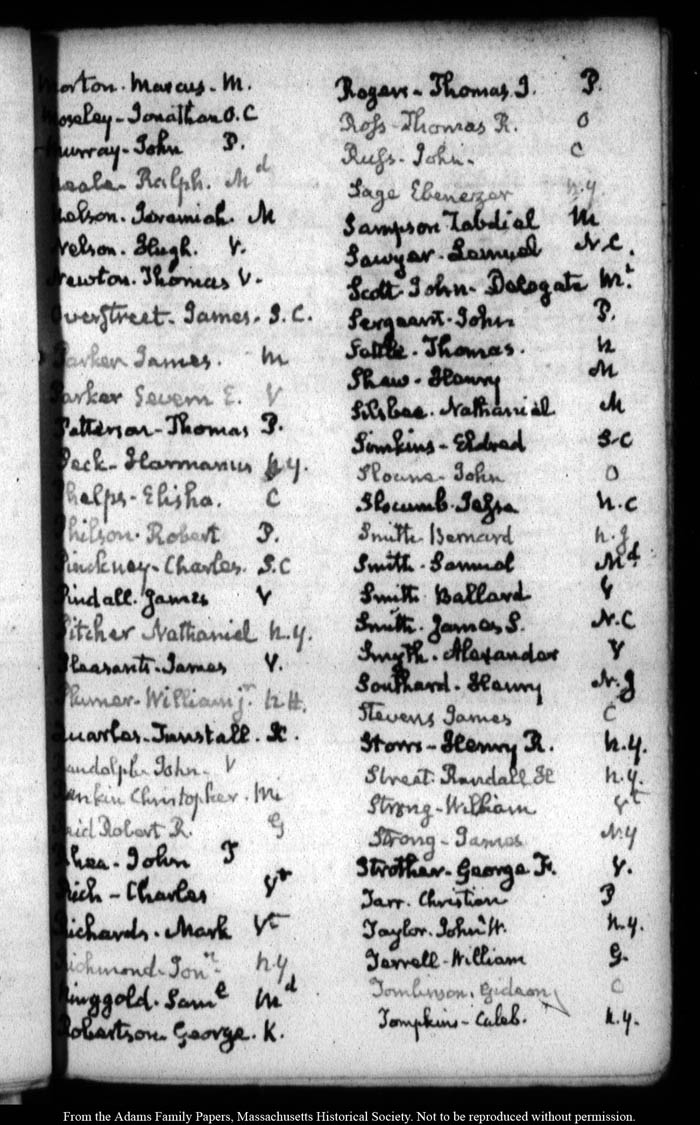 Morton. Marcus. M.
Moseley - Jonathan O. C
Murray - John P.
Neale - Ralph. Md
Nelson. Jeremiah. M
Nelson. Hugh. V.
Newton. Thomas V.
Overstreet. James. S. C.
Parker James. M
Parker Severn E. V
Patterson - Thomas P.
Peck - Harmanus N.Y.
Phelps - Elisha. C
Philson. Robert P.
Pinckney - Charles. S.C
Pindall. James V
Pitcher Nathaniel N.Y.
Pleasants. James V.
Plumer. William jr. N.H.
Quarles. Tunstall. K.
Randolph. John. V
Rankin Christopher. Mi
Reid Robert R. G
Rhea - John T
Rich - Charles Vt
Richards. Mark Vt
Richmond. Jonn. N.Y
Ringgold. Saml Md
Robertson. George. K.
Rogers - Thomas. J. P.
Ross - Thomas R. O
Russ. John. C
Sage Ebenezer N.Y.
Sampson Zabdial M
Sawyer. Lemuel N.C.
Scott. John. Delegate Mi.
Sergeant. John P.
Settle. Thomas. N
Shaw - Henry M
Silsbee. Nathaniel M
Simkins - Eldred S.C
Sloane. John O
Slocumb. Jesse N.C
Smith. Bernard N.J
Smith. Samuel Md
Smith Ballard V
Smith. James S. N.C
Smyth. Alexander V
Southard. Henry N.J
Stevens James C
Storrs - Henry R. N.Y.
Street. Randall H N.Y.
Strong - William Vt
Strong - James N.Y
Strother. George F. V.
Tarr. Christian P
Taylor. John W. N.Y.
Terrell. William G.
Tomlinson. Gideon C
Tompkins - Caleb. N.Y.
From the Adams Family Papers, Massachusetts Historical Society. Not to be reproduced without permission.